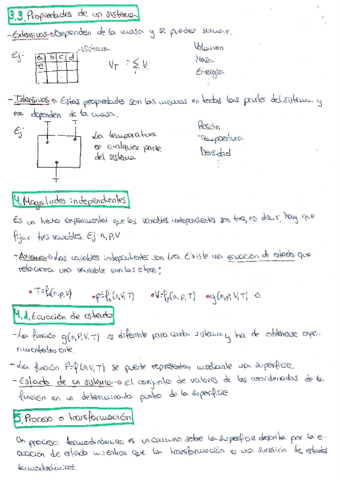 3.3. Propiedades de un sistema
- Extensivas → Dependen de la masa y se pueden sumar.
Ej: sistema Volumen
a b c d V_T = Σ V_i Masa
e Energía
- Intensivas → Estas propiedades son las mismas en todas las partes del sistema y
no dependen de la masa.
T Presión
Ej: La temperatura Temperatura
en cualquier parte Densidad
del sistema
T T
4. Magnitudes independientes
Es un hecho experimental que las variables independientes son tres, es decir, hay que
fijar tres variables. Ej: n, P, V
- Axioma → Las variables independientes son tres. Existe una ecuación de estado que
relaciona una variable con las otras:
• T=f(n,P,V) • P=f(n,V,T) • V=f(n,P,T) • g(n,P,V,T)=0
4.1. Ecuación de estado
- La función g(n,P,V,T) es diferente para cada sistema y ha de obtenerse expe-
rimentalmente.
- La función P=f(n,V,T) se puede representar mediante una superficie.
- Estado de un sistema → El conjunto de valores de las coordenadas de la
función en un determinado punto de la superficie
5. Proceso o transformación
Un proceso termodinámico es un camino sobre la superficie descrita por la e-
cuación de estado mientras que la transformación es una sucesión de estados
termodinámicos.